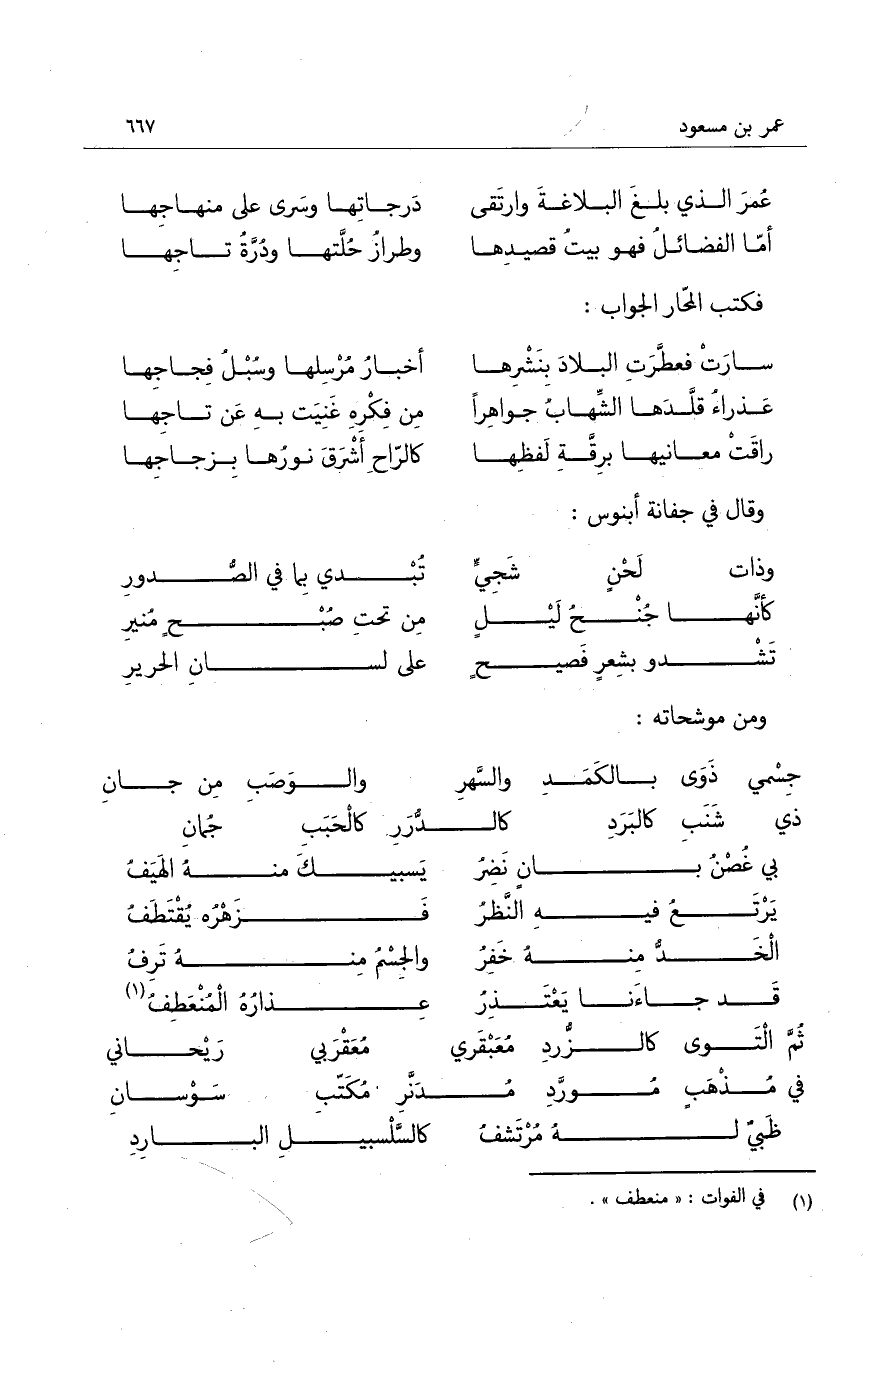 عمر بن مسعود ٦٦٧
عُمرَ الذي بلغَ البلاغةَ وارتَقى دَرجاتِها وسَرى على منهاجِها
أمّا الفضائلُ فهو بيتُ قصيدِها وطرازُ حُلَّتِها ودُرَّةُ تاجِها
فكتب المحّار الجواب :
سارَتْ فعطَّرَتِ البلادَ بِنَشْرِها أخبارُ مُرْسِلِها وسُبْلُ فجاجِها
عَذراءُ قلَّدَها الشِّهابُ جواهراً من فكْرِهِ غَنِيَت به عَن تاجِها
راقَتْ معانيها برقَّةِ لَفظِها كالرّاحِ أشْرَقَ نورُها بزجاجِها
وقال في جفانة أبنوس :
وذات لَحْنٍ شَجيٍّ تُبْدي بما في الصُّدورِ
كأنَّها جُنْحُ لَيْلٍ من تحتِ صُبْحٍ مُنيرِ
تَشْدو بشعرٍ فَصيحٍ على لسانِ الحريرِ
ومن موشحاته :
جِسْمي ذَوَى بالكَمَدِ والسَّهرِ والوَصَبِ من جانِ
ذي شَنَبٍ كالبَرَدِ كالدُّرَرِ كالْحَبَبِ جُمان
بي غُصْنُ بانٍ نَضِرُ يَسبيكَ منهُ الهَيَفُ
يَرْتَعُ فيهِ النَّظرُ فَزَهْرُه يُقْتَطَفُ
الْخَدُّ منهُ خَفِرُ والجِسْمُ منهُ تَرِفُ
قَد جاءَنا يَعْتَذِرُ عِذارُهُ الْمُنْعَطِفُ(١)
ثُمَّ الْتَوى كالزَّردِ مُعَبْقَري مُعَقْرَبي رَيْحاني
في مُذْهَبٍ مُورَّدِ مُدَنَّرِ مُكَتّبِ سَوْسانِ
ظَبيٌ لهُ مُرْتَشفُ كالسَّلْسبيلِ الباردِ
(١) في الفوات : « منعطف » .